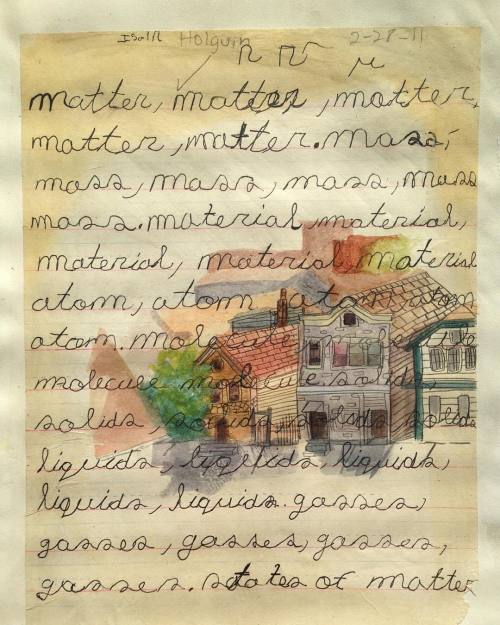 Isa Holguin 2-28-11
matter, matter, matter,
matter, matter. mass,
mass, mass, mass, mass
mass. material, material,
material, material material
atom, atom atom atom
atom. molecule
molecule molecule. solids,
solids, solids, solids solids
liquids, liquids, liquids,
liquids, liquids. gasses,
gasses, gasses, gasses,
gasses. states of matter